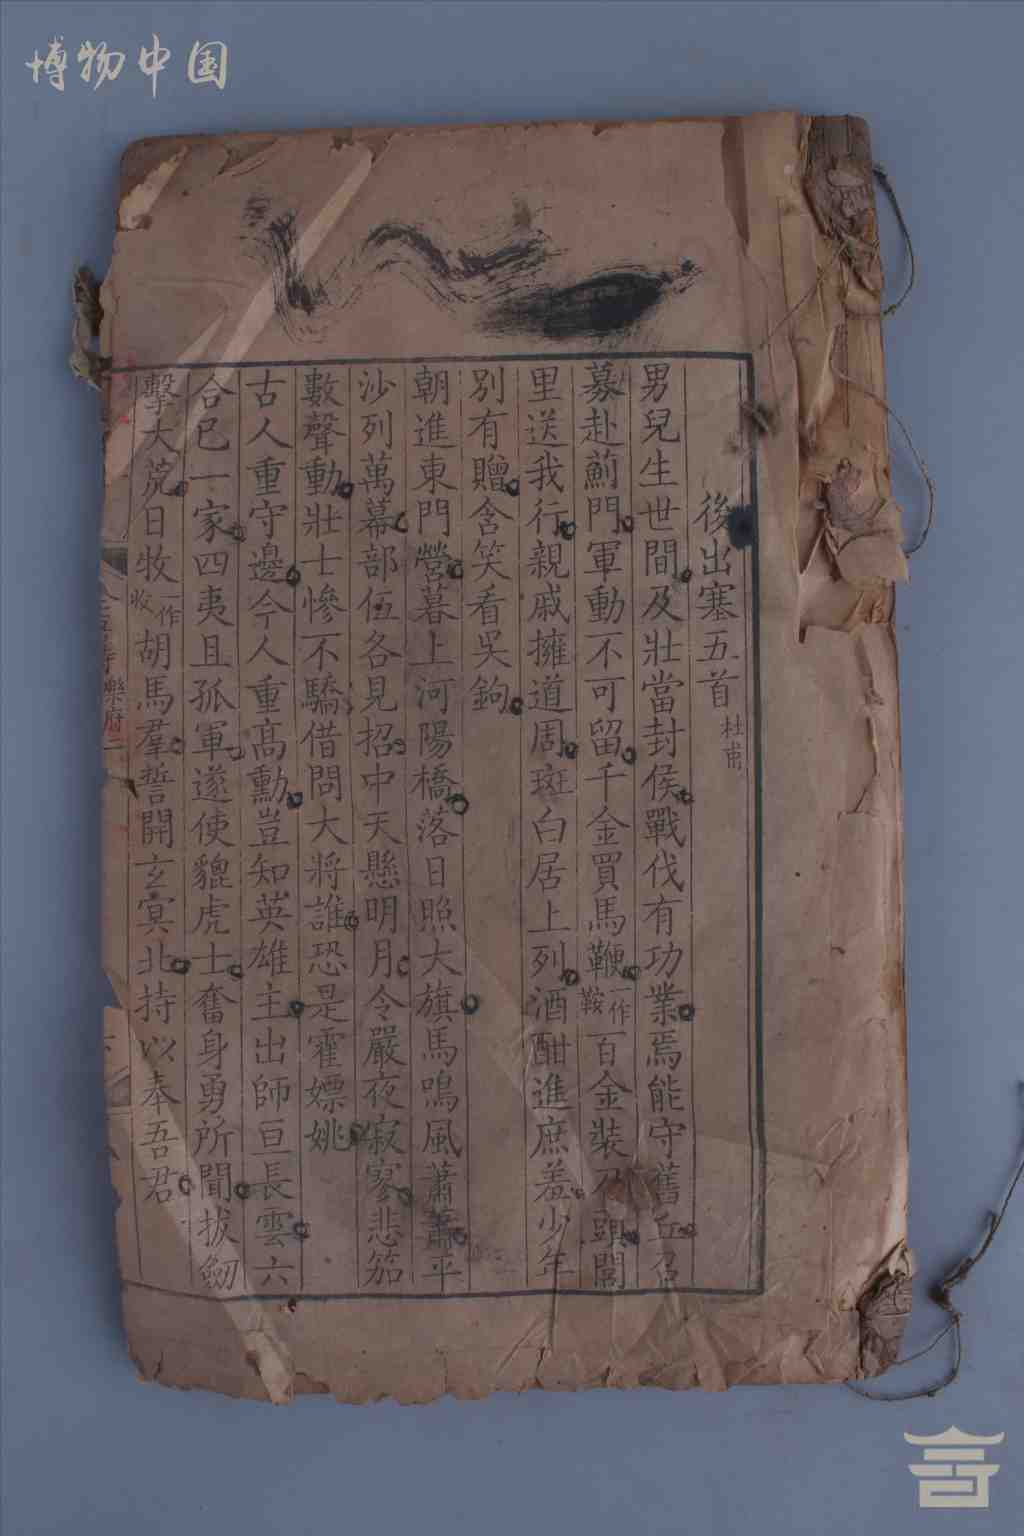 博物中国
後出塞五首 杜甫
男兒生世間及壯當封侯戰伐有功業焉能守舊丘召
募赴薊門軍動不可留千金買馬鞭一作鞍百金裝刀頭閭
里送我行親戚擁道周斑白居上列酒酣進庶羞少年
別有贈含笑看吳鉤
朝進東門營暮上河陽橋落日照大旗馬鳴風蕭蕭平
沙列萬幕部伍各見招中天懸明月令嚴夜寂寥悲笳
數聲動壯士慘不驕借問大將誰恐是霍嫖姚
古人重守邊今人重高勳豈知英雄主出師亘長雲六
合已一家四夷且孤軍遂使貔虎士奮身勇所聞拔劒
擊大荒日牧一作收胡馬羣誓開玄冥北持以奉吾君
樂府二